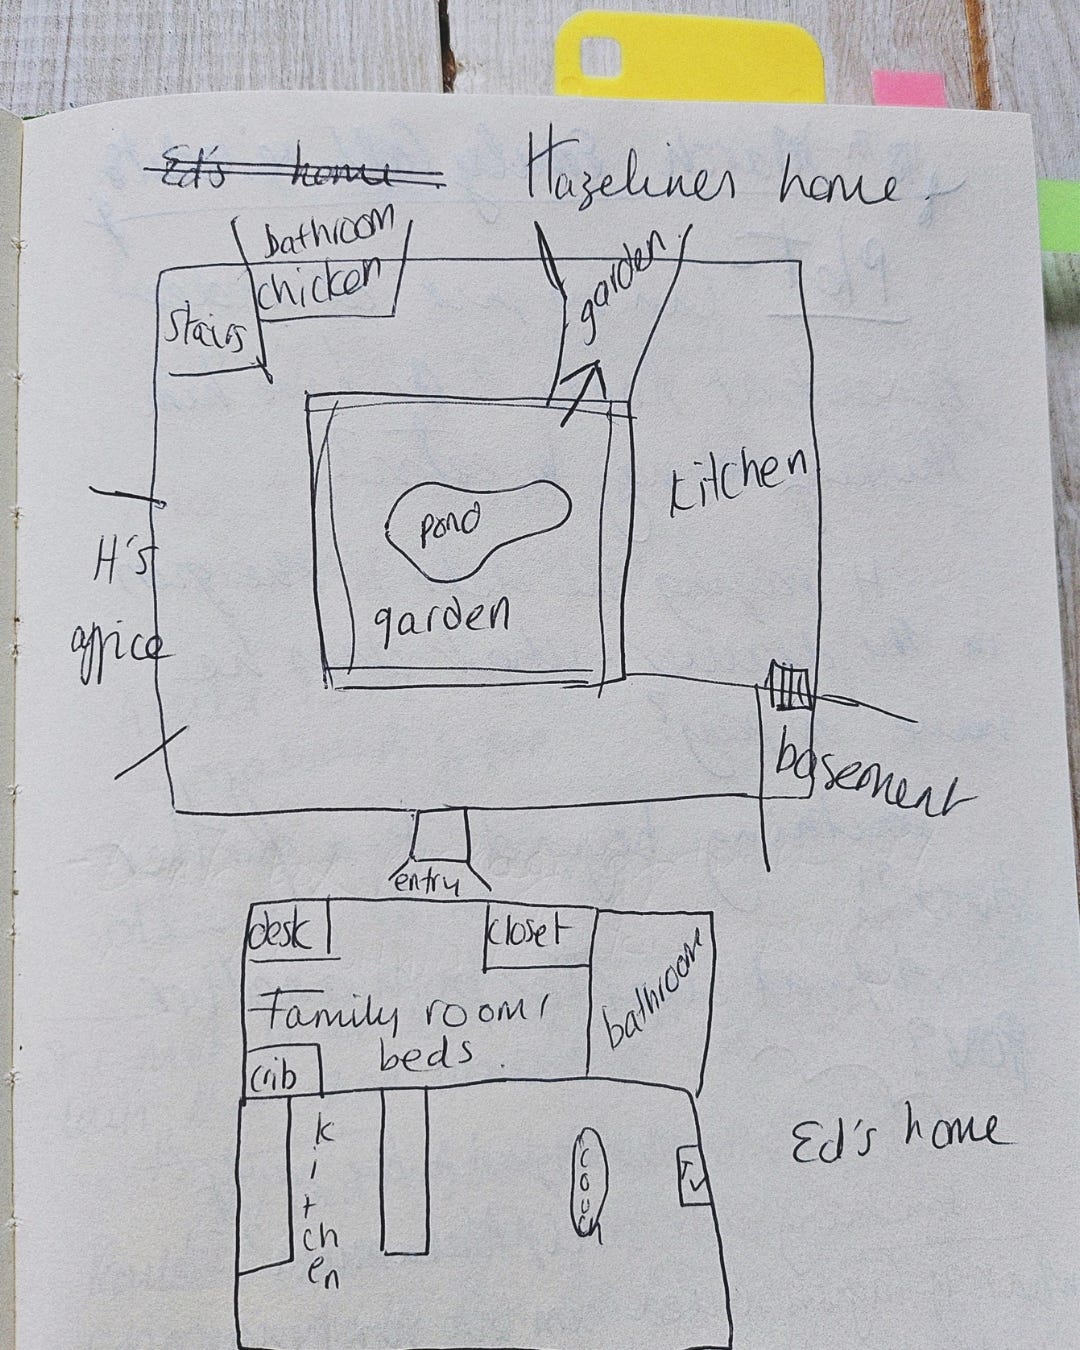 Ed's home
Hazelines home.
bathroom
chicken
stairs
garden
kitchen
pond
garden
H's
office
basement
entry
desk
closet
Family room/
beds.
bathroom
crib
kitchen
couch
TV
Ed's home